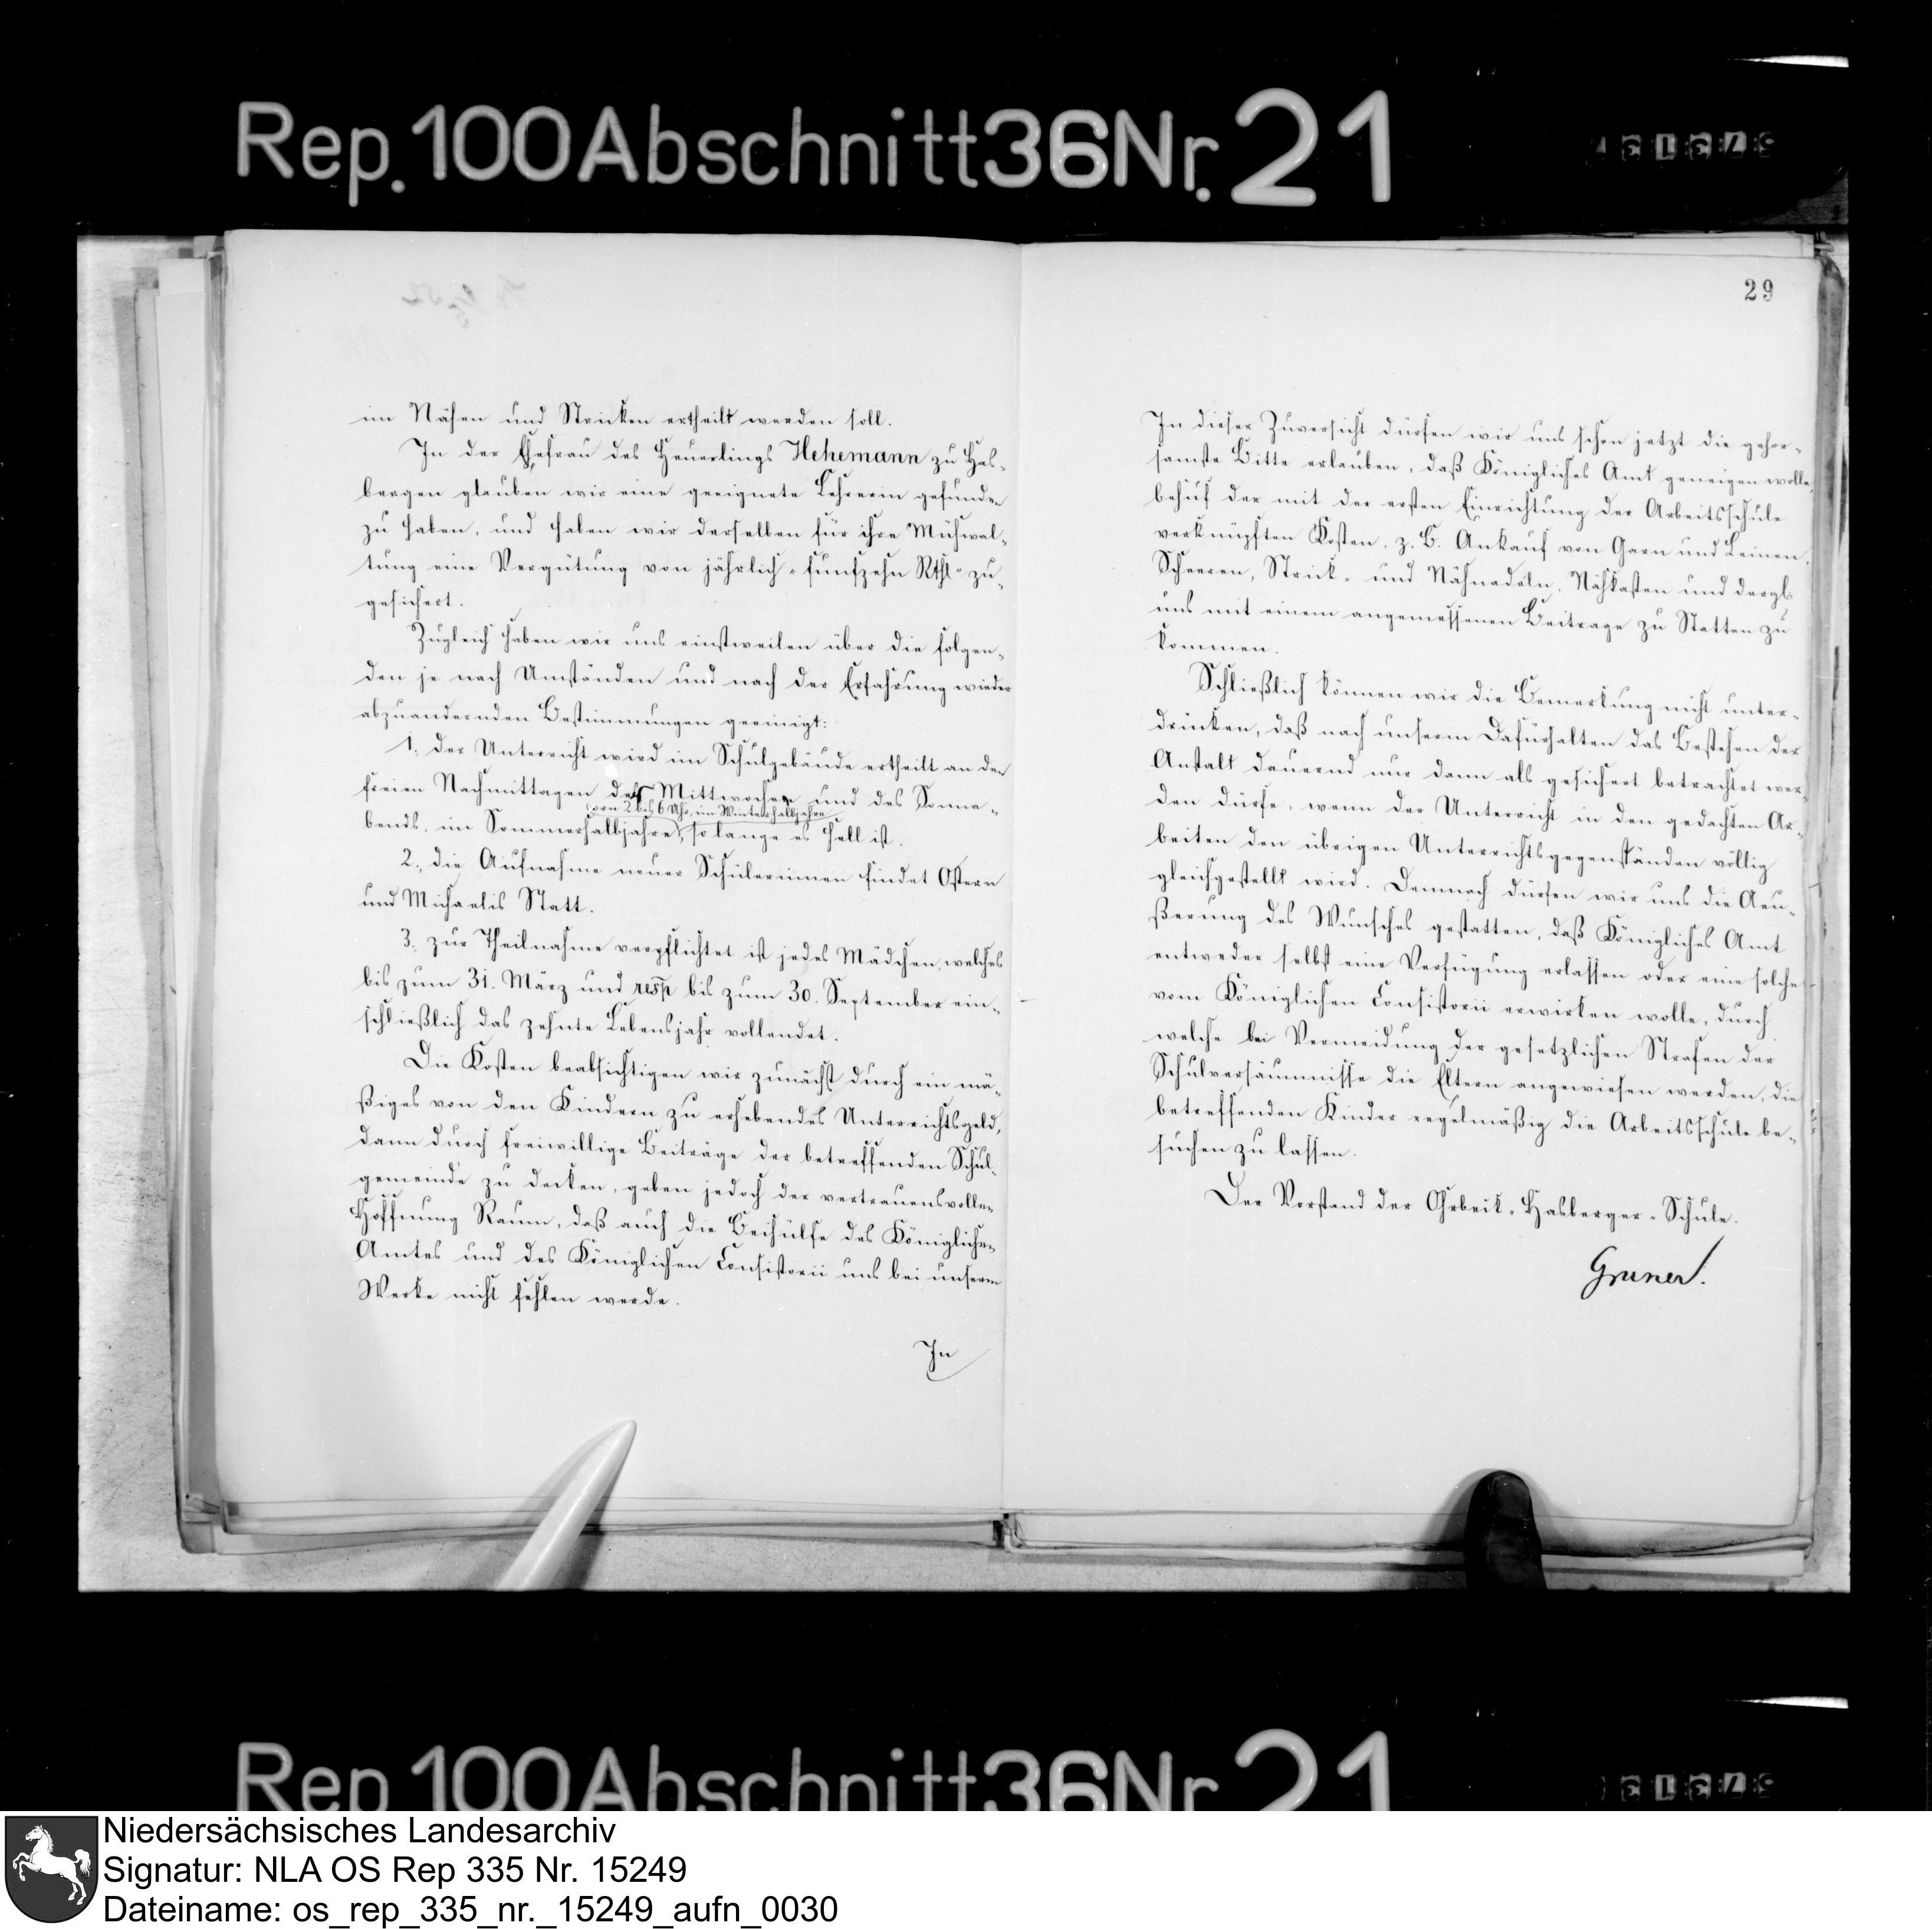 Rep. 100 Abschnitt 36 Nr. 21
29
im Nähen und Stricken ertheilt werden soll.
In der Ehefrau des Heuerlings Hehemann zu Has-
bergen glauben wir eine geeignete Lehrerin gefunden
zu haben, und haben wir derselben für ihre Mühwal-
tung eine Vergütung von jährlich "funfzehn Rthl" zu-
gesichert.
Zugleich haben wir uns einstweilen über die folgen-
den je nach Umständen und nach der Erfahrung wieder
abzuandernden Bestimmungen geeinigt:
1., der Unterricht wird im Schulgebäude ertheilt an den
freien Nachmittagen des Mittwochen und des Sonna-
(von 2 bis 6 Uhr, im Winterhalbjahre
bends, im Sommerhalbjahre), so lange es hell ist.
2., die Aufnahme neuer Schülerinnen findet Ostern
und Michaelis Statt.
3., zur Theilnahme verpflichtet ist jedes Mädchen, welches
bis zum 31. März und resp bis zum 30. September ein-
schließlich das zehnte Lebensjahr vollendet.
Die Kosten beabsichtigen wir zunächst durch ein mä-
ßiges von den Kindern zu erhebendes Unterrichtsgeld,
dann durch freiwillige Beiträge der betreffenden Schul-
gemeinde zu decken, geben jedoch der vertrauensvollen
Hoffnung Raum, daß auch die Beihülfe des Königlichen
Amtes und des Königlichen Consistorii uns bei unserem
Werke nicht fehlen werde.
In
In dieser Zuversicht dürfen wir uns schon jetzt die gehor-
samste Bitte erlauben, daß Königliches Amt geneigen wolle,
behuf der mit der ersten Einrichtung der Arbeitsschule
verknüpften Kosten, z. B. Ankauf von Garn und Leinen,
Scheeren, Strick- und Nähnadeln, Nähkasten und dergl.
uns mit einem angemessenen Beitrage zu Statten zu
kommen.
Schließlich können wir die Bemerkung nicht unter-
drücken, daß nach unserm Dafürhalten das Bestehen der
Anstalt dauernd nur dann als gesichert betrachtet wer-
den dürfe, wenn der Unterricht in den gedachten Ar-
beiten den übrigen Unterrichtsgegenständen völlig
gleichgestellt wird. Demnach dürfen wir uns die Aeu-
ßerung des Wunsches gestatten, daß Königliches Amt
entweder selbst eine Verfügung erlassen oder eine solche
vom Königlichen Consistorii erwirken wolle, durch
welche bei Vermeidung der gesetzlichen Strafen der
Schulversäumnisse die Eltern angewiesen werden, die
betreffenden Kinder regelmäßig die Arbeitsschule be-
suchen zu lassen.
Der Vorstand der Ohrbeck-Hasberger-Schule.
Gruner.
Rep. 100 Abschnitt 36 Nr. 21
Niedersächsisches Landesarchiv
Signatur: NLA OS Rep 335 Nr. 15249
Dateiname: os_rep_335_nr._15249_aufn_0030